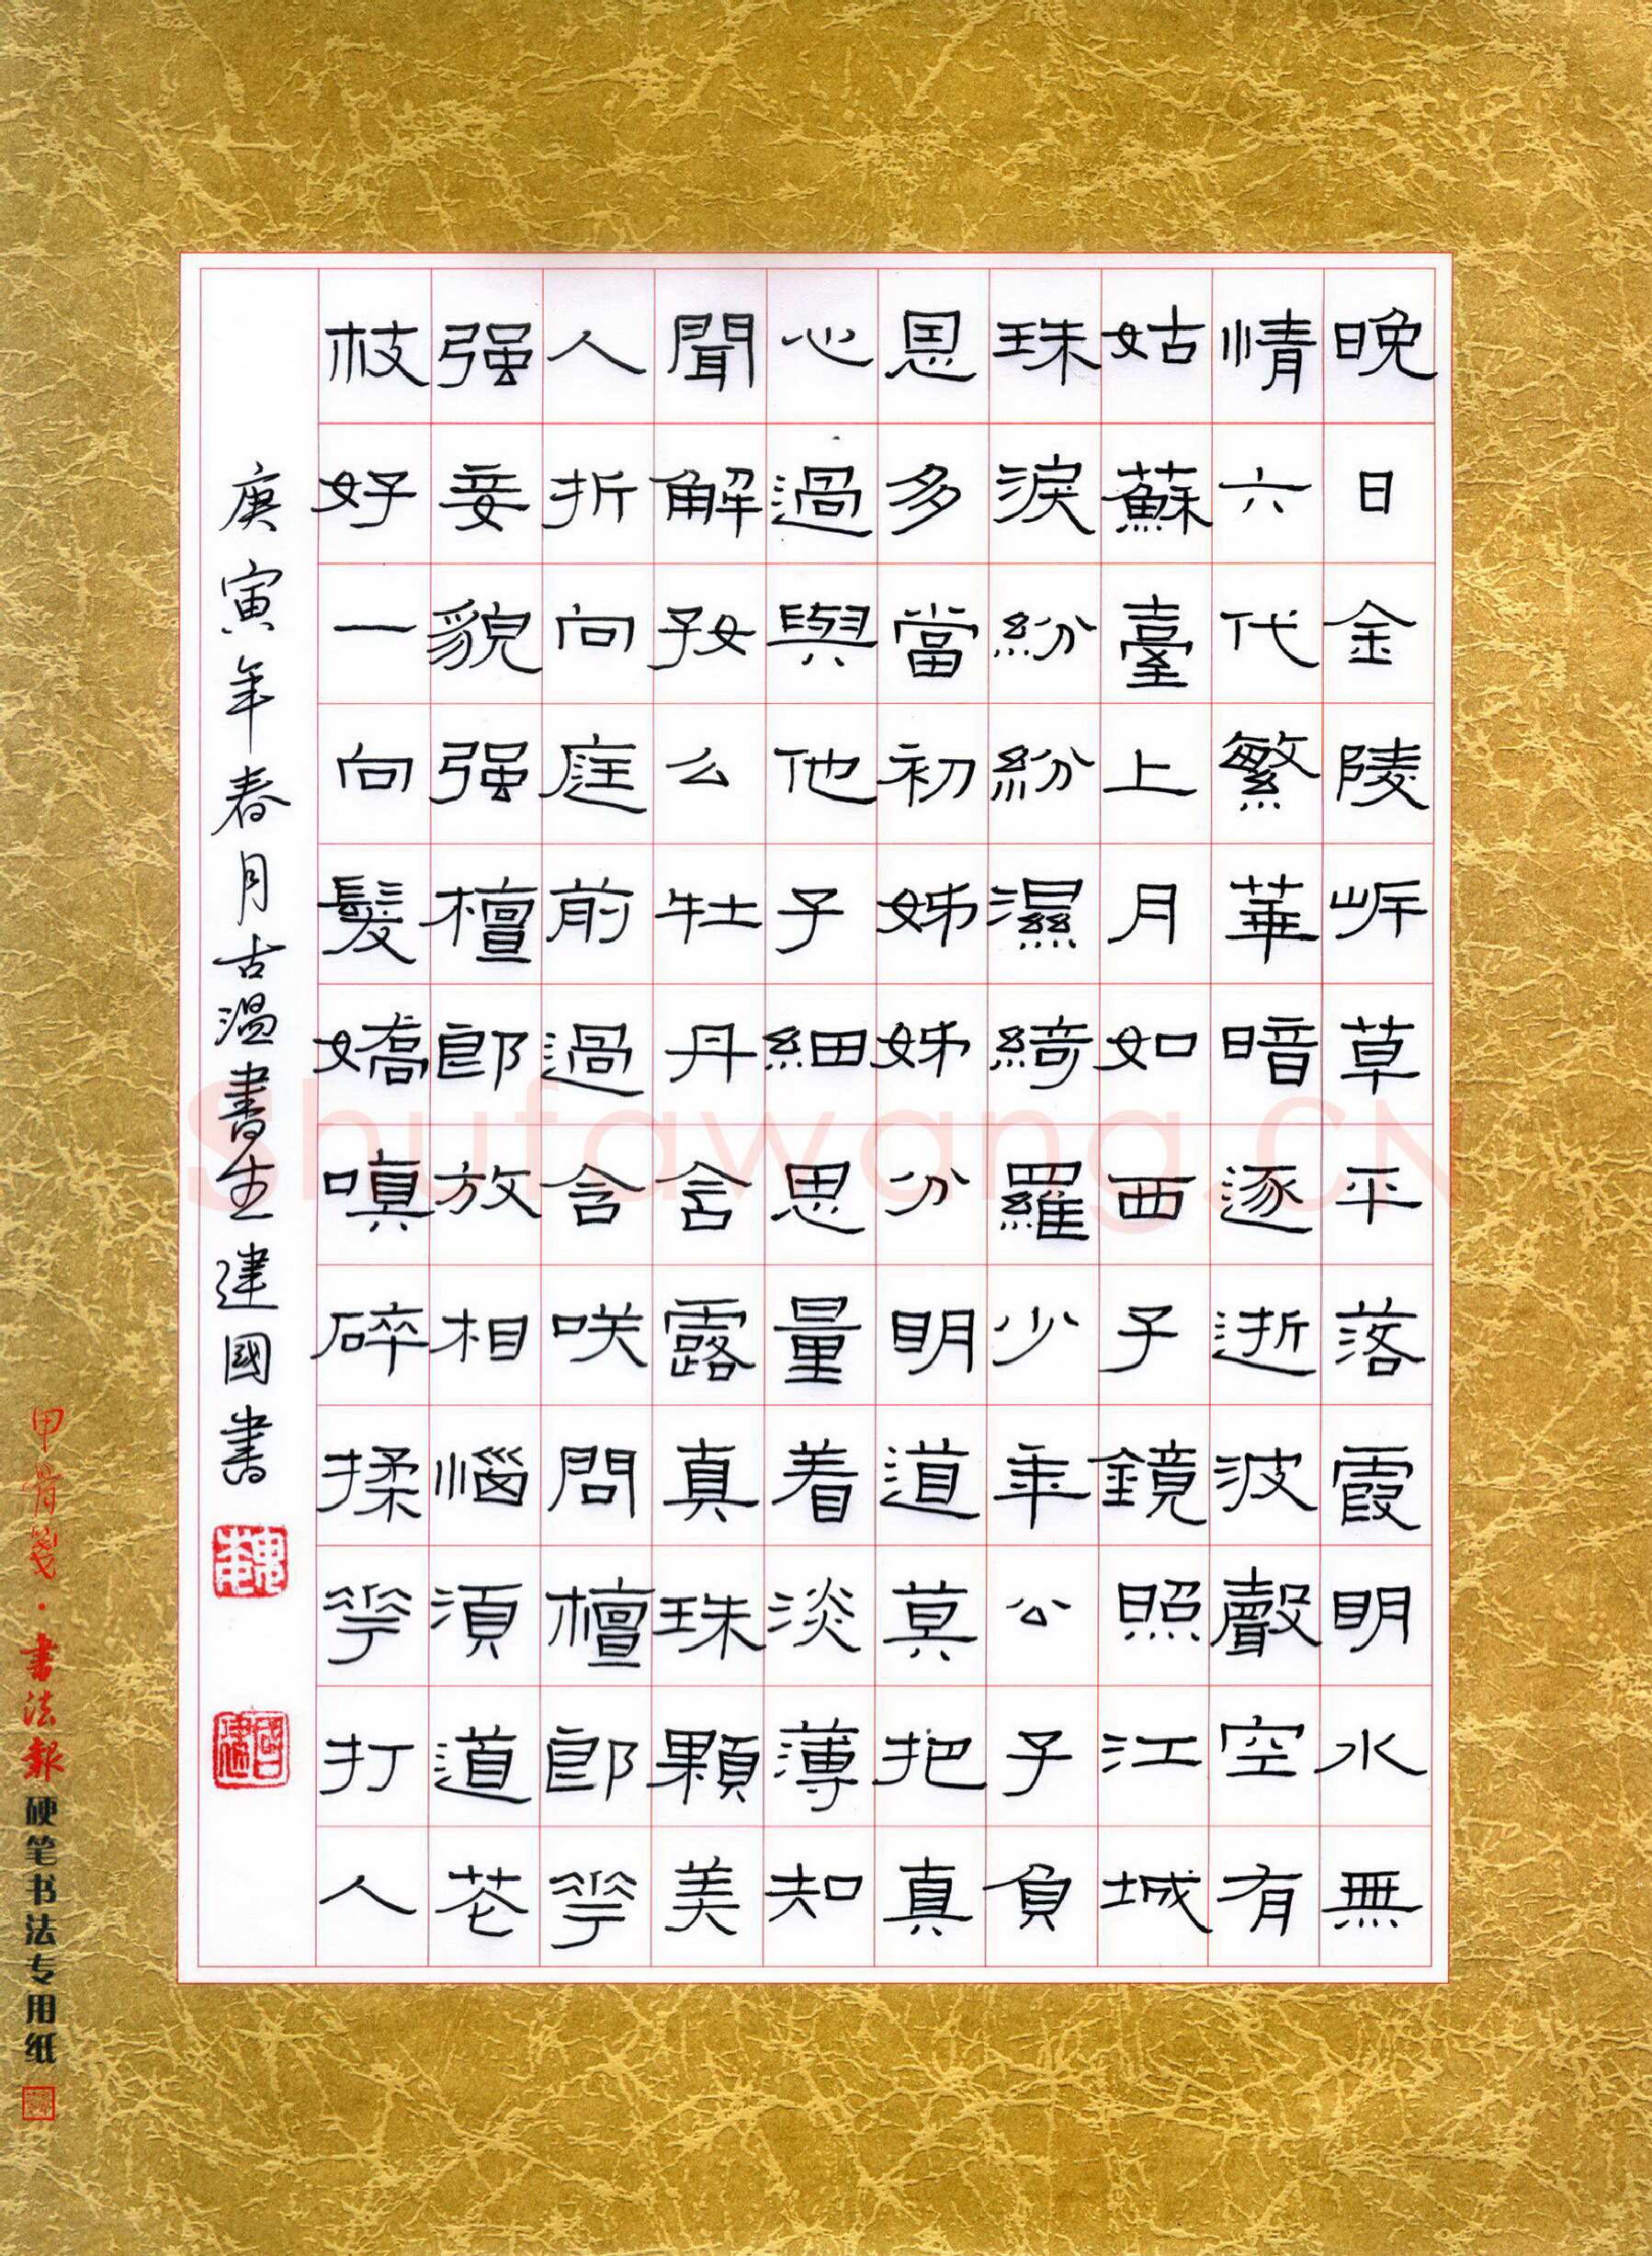 晚日金陵岸草平落霞明水無
情六代繁華暗逐逝波聲空有
姑蘇臺上月如西子鏡照江城
珠淚紛紛濕綺羅少年公子負
恩多當初姊姊分明道莫把真
心過與他子細思量着淡薄知
聞解好么牡丹含露真珠顆美
人折向庭前過含咲問檀郎花
強妾貌強檀郎放相惱須道花
枝好一向髮嬌嗔碎挼花打人
庚寅年春月古溫書生建國書
甲骨箋·書法報硬笔书法专用纸
Shufawang.CN